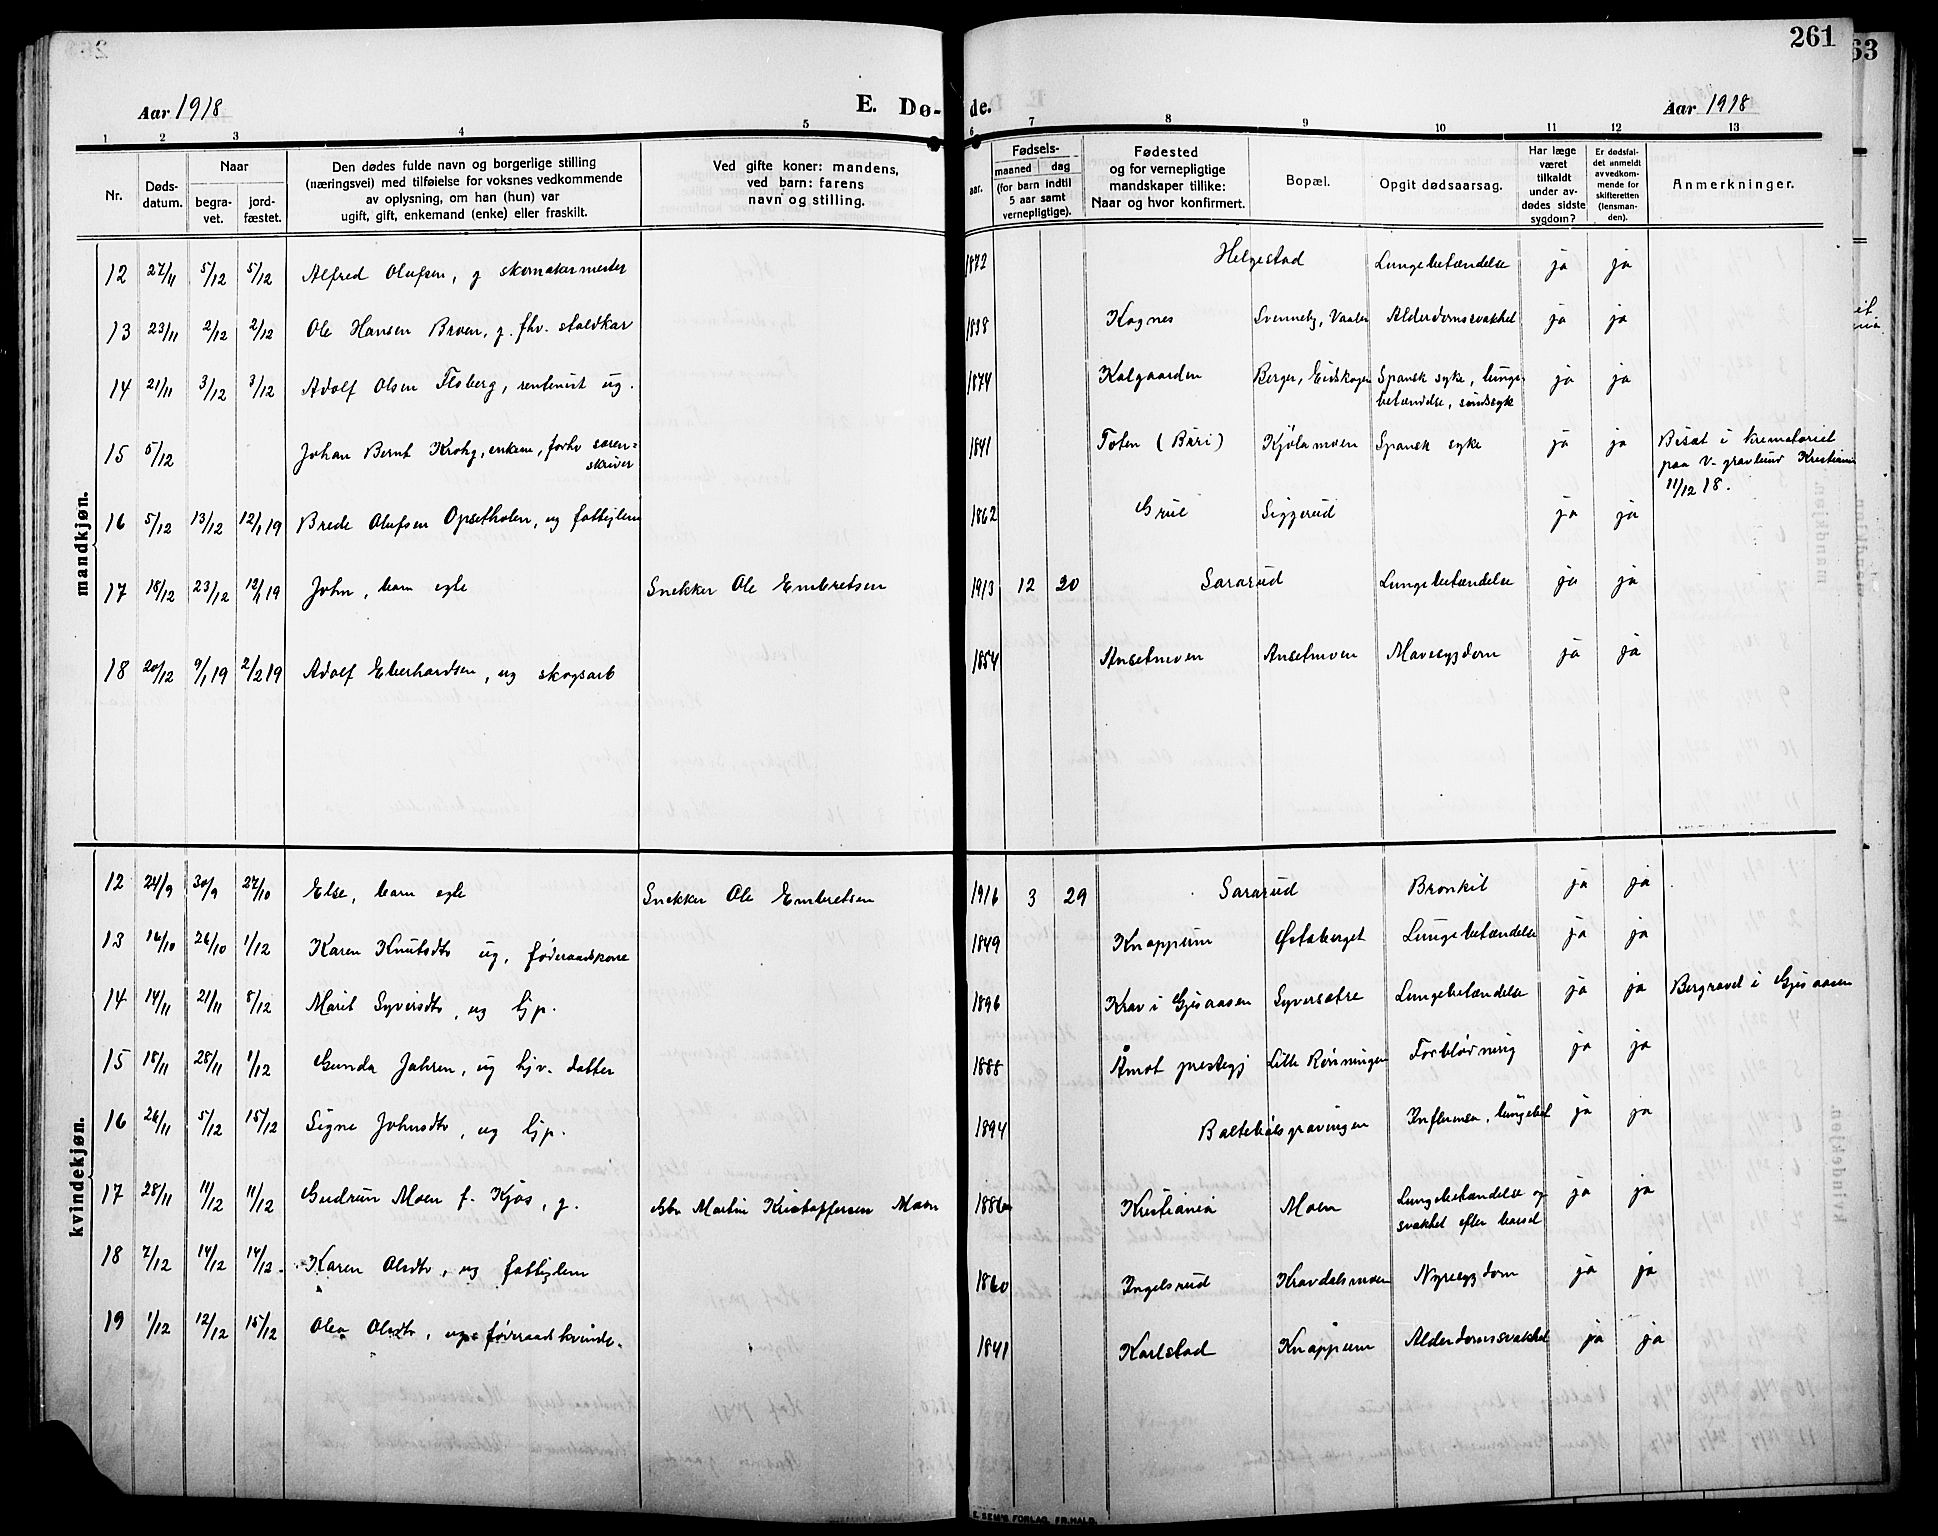 261
63
Aar 1918 E. Dø- de. Aar 1918
1 2 3 4 5 6 7 8 9 10 11 12 13
Nr. Døds-datum. Naar begra-vet. jord-fæstet. Den dødes fulde navn og borgerlige stilling (næringsvei) med tilføielse for voksnes vedkommende av oplysning, om han (hun) var ugift, gift, enkemand (enke) eller fraskilt. Ved gifte koner: mandens, ved barn: farens navn og stilling. aar. Fødsels- maaned dag (for barn indtil 5 aar samt vernepligtige). Fødested og for vernepligtige mandskaper tillike: Naar og hvor konfirmert. Bopæl. Opgit dødsaarsag. Har læge været tilkaldt under av-dødes sidste sygdom? Er dødsfal-det anmeldt av vedkom-mende for skifteretten (lensman-den). Anmerkninger.
mandkjøn.
12 27/11 5/12 5/12 Alfred Olufsen, g skomakermester 1872 Helgestad Lungebetændelse ja ja
13 23/11 2/12 2/12 Ole Hansen Broen, g. fhv. staldkar 1838 Kognes Svenneby, Vaaler Alderdomssvakhet ja ja
14 21/11 3/12 3/12 Adolf Olsen Flsberg, rentenist ug. 1874 Kolgaarden Berger, Eidskogen Spansk syke, lunge-
betændelse, sindssyk ja ja
15 5/12 Johan Bernt Krohg, enkem, forhv soren=
skriver 1841 Toten (Buri) Kjølamoen Spansk syke ja ja Bisat i krematoriet
paa V. gravlund Kristiania
11/12 18.
16 5/12 13/12 12/1 19 Brede Olufsen Opsetholen, ug fattiglem 1862 Grue Siggerud ja ja
17 18/12 23/12 12/1 19 John, barn egte Snekker Ole Embretsen 1913 12 20 Sararud Lungebetændelse ja ja
18 20/12 9/1 19 2/2 19 Adolf Eberhardsen, ug skogsarb 1854 Ansetmoen Ansetmoen Mavesygdom ja ja
kvindekjøn.
12 24/9 30/9 27/10 Else, barn egte Snekker Ole Embretsen 1916 3 29 Sararud Bronkit ja ja
13 16/10 26/10 1/12 Karen Knutsdtr ug, føderaadskone 1849 Knapperm Østaberget Lungebetændelse ja ja
14 14/11 21/11 8/12 Marit Syversdtr, ug tjp. 1896 Krav i Gjesaasen Syversætre Lungebetændelse ja ja Bergravet i Gjesaasen
15 18/11 28/11 1/12 Gunda Jahren, ug hjv. datter 1888 Åmot prestegj Lille Rønningen Forblødning ja ja
16 26/11 5/12 15/12 Signe Johnsdtr, ug tjp. 1894 Baltebølsgravingen Influensa, lungebet ja ja
17 28/11 11/12 11/12 Gudrun Moen f. Kjos, g. Gbr Martin Kristoffersen Moen 1886 Kristiania Moen Lungebetændelse og
svakhet efter barsel ja ja
18 7/12 14/12 14/12 Karen Olsdtr, ug fattiglem 1860 Ingelsrud Kravdalsmoen Nyresygdom ja ja
19 1/12 12/12 15/12 Olea Olsdtr, ug føderaadskvinde. 1841 Karlstad Knapperm Alderdomssvakhet ja ja
E. SEM'S FORLAG, FR.HALD.